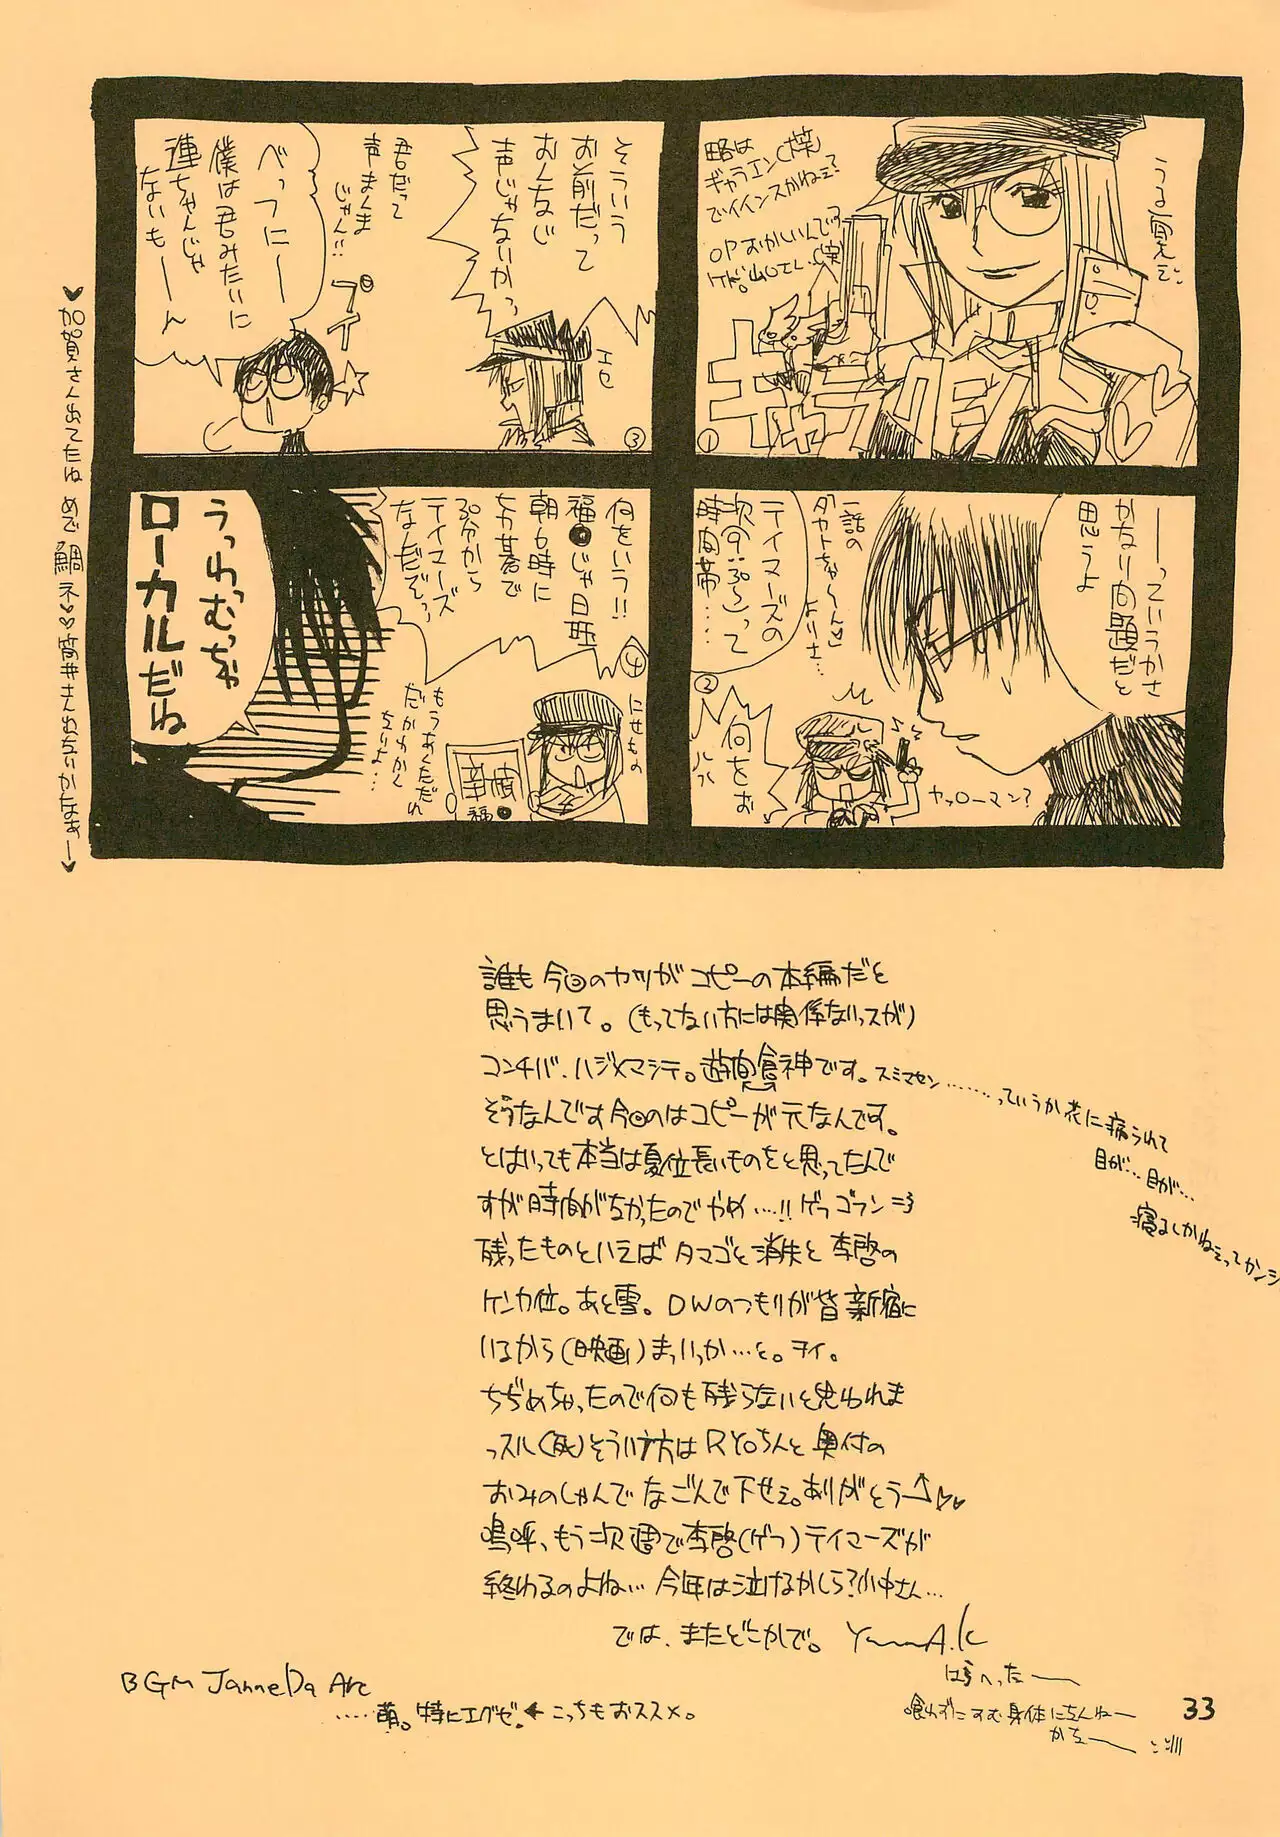 うる覚え:
略は
ギャラエン(楽)
でイインスかねぇ?
OPおかしいんです
ケド。山口さん。(笑)
ギャラクシー
①
ーーっていうかさ
かなり問題だと
思うよ
一話の
「タカトちゃ〜ん♡」
よりさ…
テイマーズの
次の
時間帯…
②
何をお
ヤッローマン?
そういう
お前だって
おんなじ
声じゃないかっ
エセ
③
君だって
声まんま
じゃん!!
プイ
べっフにー
僕は君みたいに
連ちゃんじゃ
ないもーーん
何をいう!!
福●じゃ日旺
朝6時に
ヒカ碁で
30分から
テイマーズ
なんだぞっ
④
にせもの
もうあくただれ
だかわかん
ないよ…
福●
うっわむっちゃ
ローカルだね
♥加賀さん出てたね めで鯛ネ♥♥筒井さん出ないかなぁー♥
誰も今回のヤツがコピーの本編だと
思うまいて。(もってない方には関係ないっスが)
コンチバ、ハジメマシテ。遊食神です。スミマセン………っていうか花に病られて
目が…目が…
寝るしかねぇってカンジ
そうなんです今回のはコピーが元なんです。
とはいっても本当は夏位長いものをと思ってたんで
すが時間がなかったのでやめ…!!ゲラゴラン
残ったものといえばタマゴと消失と李啓の
ケンカ位。あと雪。DWのつもりが皆新宿に
いるから(映画)まっいっか…と。ヲイ。
ちぢめちゃったので何も残らないと思われま
っスル(死)そういう方はRYOちんと奥付の
おみのしゃんでなごんで下せぇ。ありがとうー↑♡♡
嗚呼、もう次週で李啓(ゲフ)テイマーズが
終わるのよね… 今年は泣けるかしら?小中さん…
では、またどこかで。 YunnA.K
はらへったー
喰わずにすむ身体になんねー
かなー
BGM Janne Da Arc
……萌。特にエグゼ。←こっちもおススメ。
33